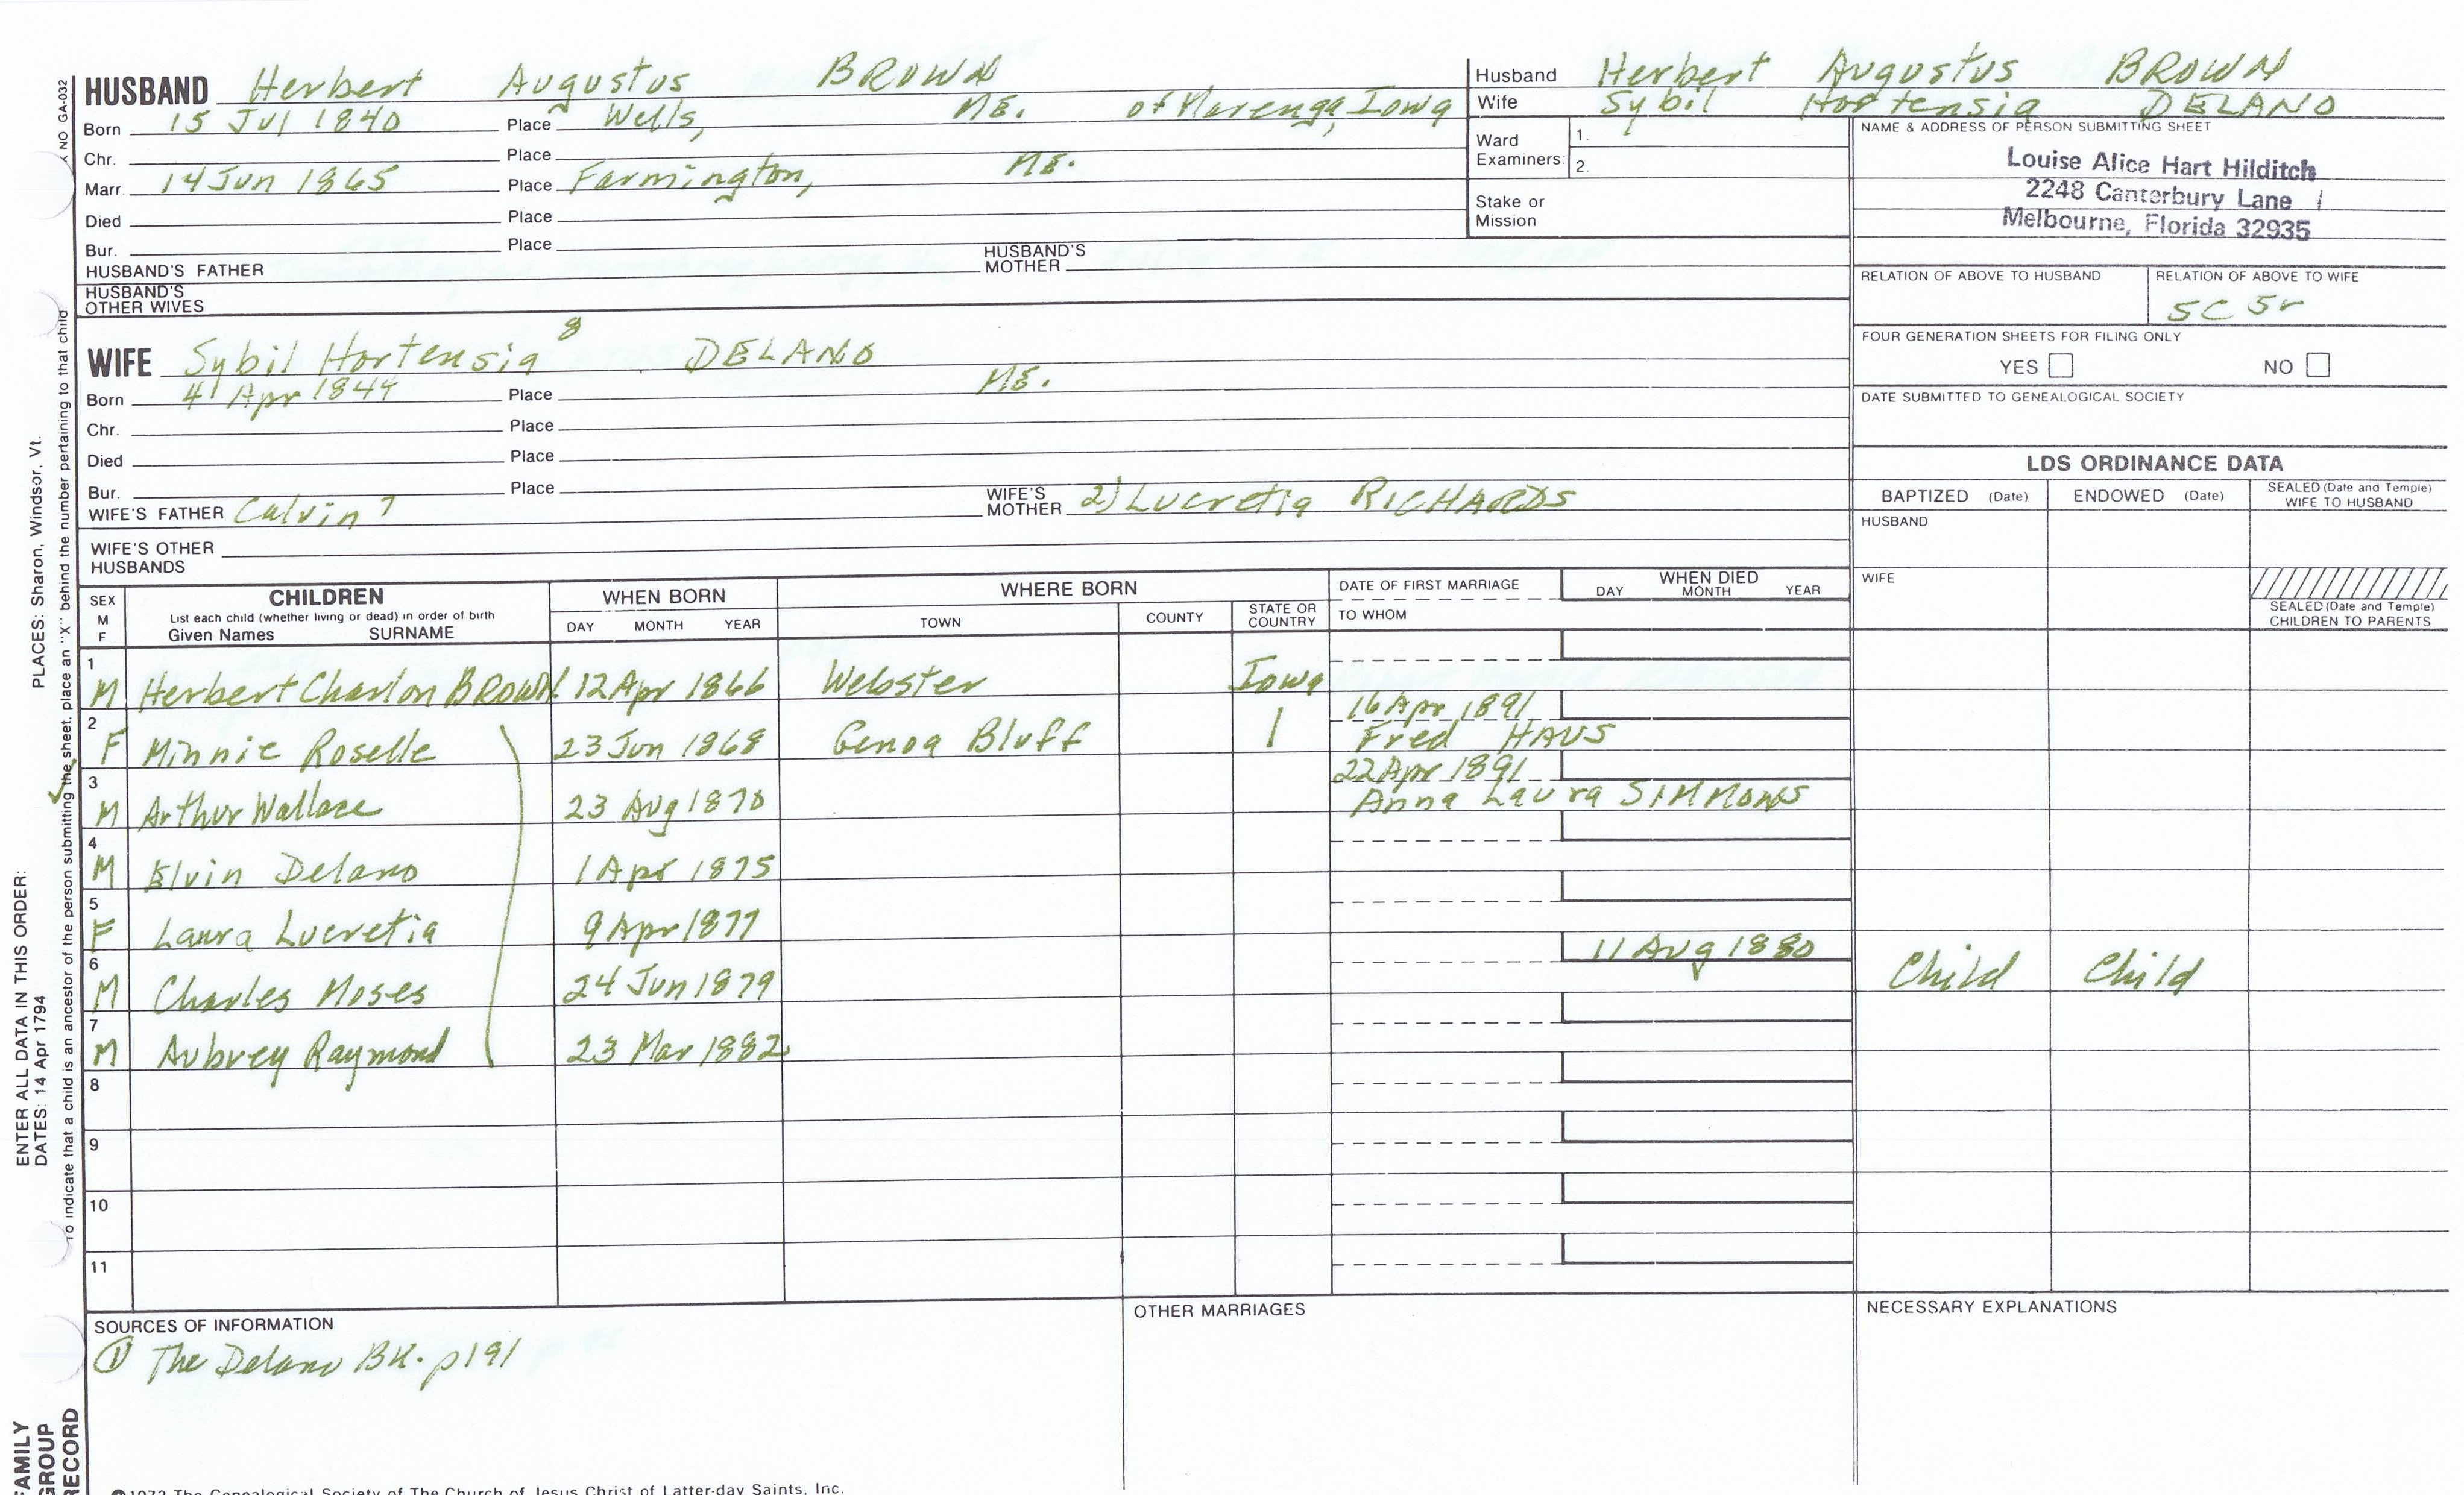 HUSBAND Herbert Augustus BROWN
Born 15 Jul 1840 Place Wells, ME. of Marengo, Iowa
Chr. Place
Marr. 14 Jun 1865 Place Farmington, ME.
Died Place
Bur. Place
HUSBAND'S FATHER HUSBAND'S MOTHER
HUSBAND'S OTHER WIVES
Husband Herbert Augustus BROWN
Wife Sybil Hortensia DELANO
Ward Examiners: 1.
2.
Stake or Mission
NAME & ADDRESS OF PERSON SUBMITTING SHEET
Louise Alice Hart Hilditch
2248 Canterbury Lane
Melbourne, Florida 32935
RELATION OF ABOVE TO HUSBAND RELATION OF ABOVE TO WIFE
5C 5r
FOUR GENERATION SHEETS FOR FILING ONLY
YES NO
DATE SUBMITTED TO GENEALOGICAL SOCIETY
WIFE Sybil Hortensia 8 DELANO
Born 4 Apr 1844 Place ME.
Chr. Place
Died Place
Bur. Place
WIFE'S FATHER Calvin 7 WIFE'S MOTHER 2) Lucretia RICHARDS
WIFE'S OTHER HUSBANDS
LDS ORDINANCE DATA
BAPTIZED (Date) ENDOWED (Date) SEALED (Date and Temple) WIFE TO HUSBAND
HUSBAND
WIFE
SEALED (Date and Temple) CHILDREN TO PARENTS
SEX M F CHILDREN WHEN BORN WHERE BORN DATE OF FIRST MARRIAGE WHEN DIED
List each child (whether living or dead) in order of birth
Given Names SURNAME DAY MONTH YEAR TOWN COUNTY STATE OR COUNTRY TO WHOM DAY MONTH YEAR
1 M Herbert Charlon BROWN 12 Apr 1866 Webster Iowa
2 F Minnie Roselle 23 Jun 1868 Genoa Bluff 16 Apr 1891
Fred HAUS
3 M Arthur Wallace 23 Aug 1870 22 Apr 1891
Anna Laura SIMMONS
4 M Elvin Delano 1 Apr 1875
5 F Laura Lucretia 9 Apr 1877
6 M Charles Moses 24 Jun 1879 11 Aug 1880 Child Child
7 M Aubrey Raymond 23 Mar 1882
8
9
10
11
SOURCES OF INFORMATION
① The Delano BK. p191
OTHER MARRIAGES
NECESSARY EXPLANATIONS
1972 The Genealogical Society of The Church of Jesus Christ of Latter-day Saints, Inc.
FAMILY GROUP RECORD
ENTER ALL DATA IN THIS ORDER:
DATES: 14 Apr 1794 PLACES: Sharon, Windsor, Vt.
To indicate that a child is an ancestor of the person submitting the sheet, place an "X" behind the number pertaining to that child
NO GA-032